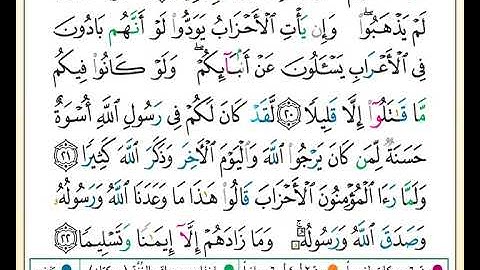 لَمْ يَذْهَبُوا۟ ۖ وَإِن يَأْتِ ٱلْأَحْزَابُ يَوَدُّوا۟ لَوْ أَنَّهُم بَادُونَ
فِى ٱلْأَعْرَابِ يَسْـَٔلُونَ عَنْ أَنۢبَآئِكُمْ ۖ وَلَوْ كَانُوا۟ فِيكُم
مَّا قَـٰتَلُوٓا۟ إِلَّا قَلِيلًا ﴿٢٠﴾ لَّقَدْ كَانَ لَكُمْ فِى رَسُولِ ٱللَّهِ أُسْوَةٌ
حَسَنَةٌ لِّمَن كَانَ يَرْجُوا۟ ٱللَّهَ وَٱلْيَوْمَ ٱلْـَٔاخِرَ وَذَكَرَ ٱللَّهَ كَثِيرًا ﴿٢١﴾
وَلَمَّا رَءَا ٱلْمُؤْمِنُونَ ٱلْأَحْزَابَ قَالُوا۟ هَـٰذَا مَا وَعَدَنَا ٱللَّهُ وَرَسُولُهُۥ
وَصَدَقَ ٱللَّهُ وَرَسُولُهُۥ ۚ وَمَا زَادَهُمْ إِلَّآ إِيمَـٰنًا وَتَسْلِيمًا ﴿٢٢﴾